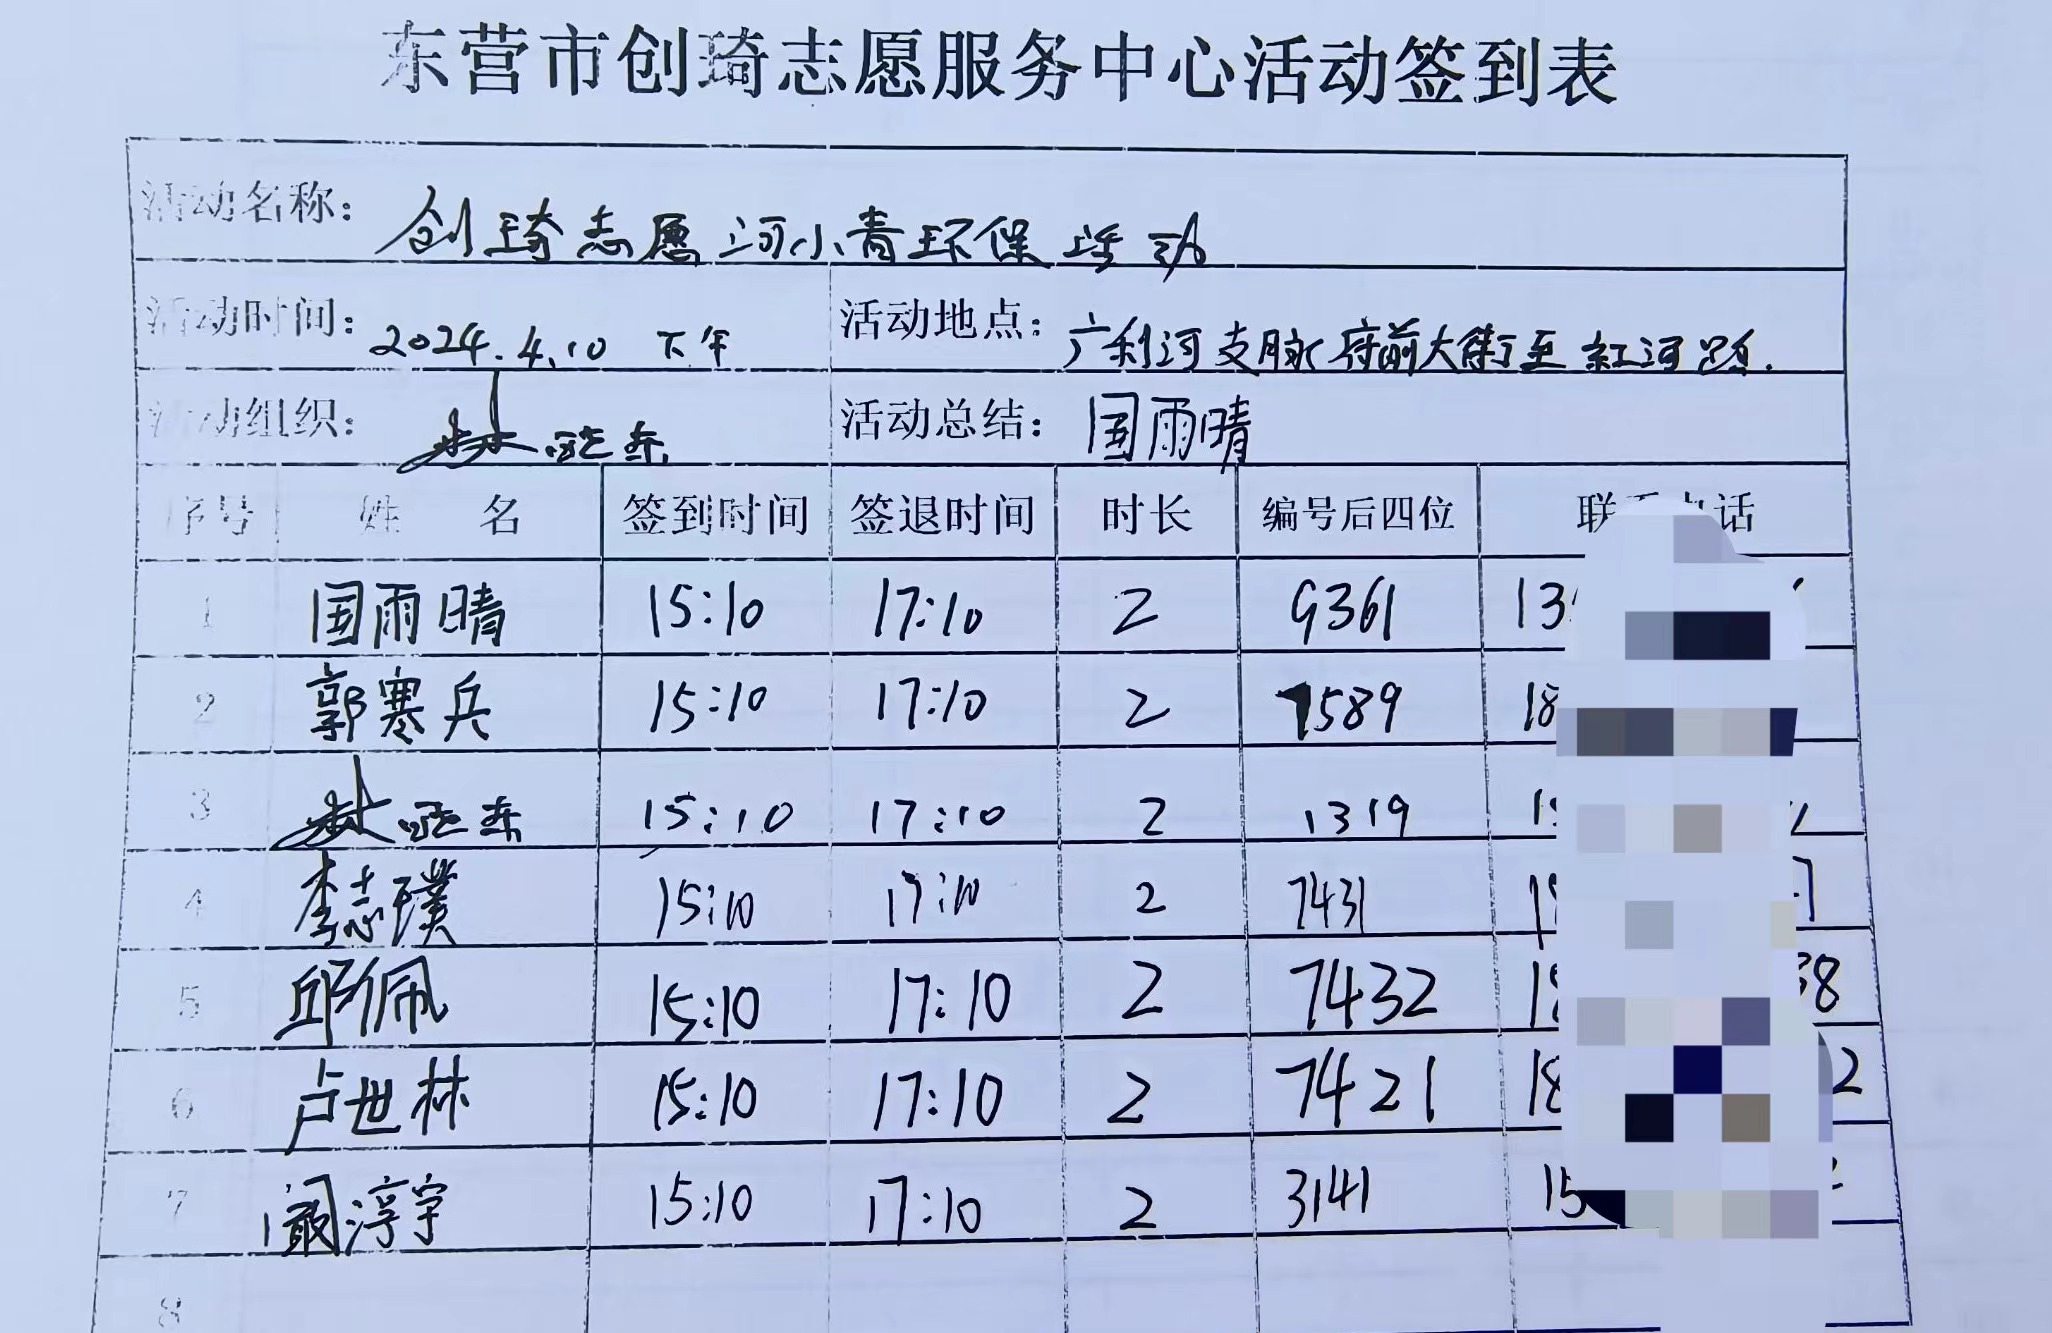 东营市创琦志愿服务中心活动签到表
活动名称： 创琦志愿河小青环保活动
活动时间： 2024.4.10 下午 活动地点： 广利河支脉府前大街至红河路.
活动组织： 活动总结： 国雨晴
序号 姓 名 签到时间 签退时间 时长 编号后四位 联系电话
1 国雨晴 15:10 17:10 2 9361 13
2 郭寒兵 15:10 17:10 2 1589 18
3 15:10 17:10 2 1319
4 李志璞 15:10 17:10 2 7431
5 邱佩 15:10 17:10 2 7432 38
6 卢世林 15:10 17:10 2 7421 18 2
7 阚淳宇 15:10 17:10 2 3141 15
8